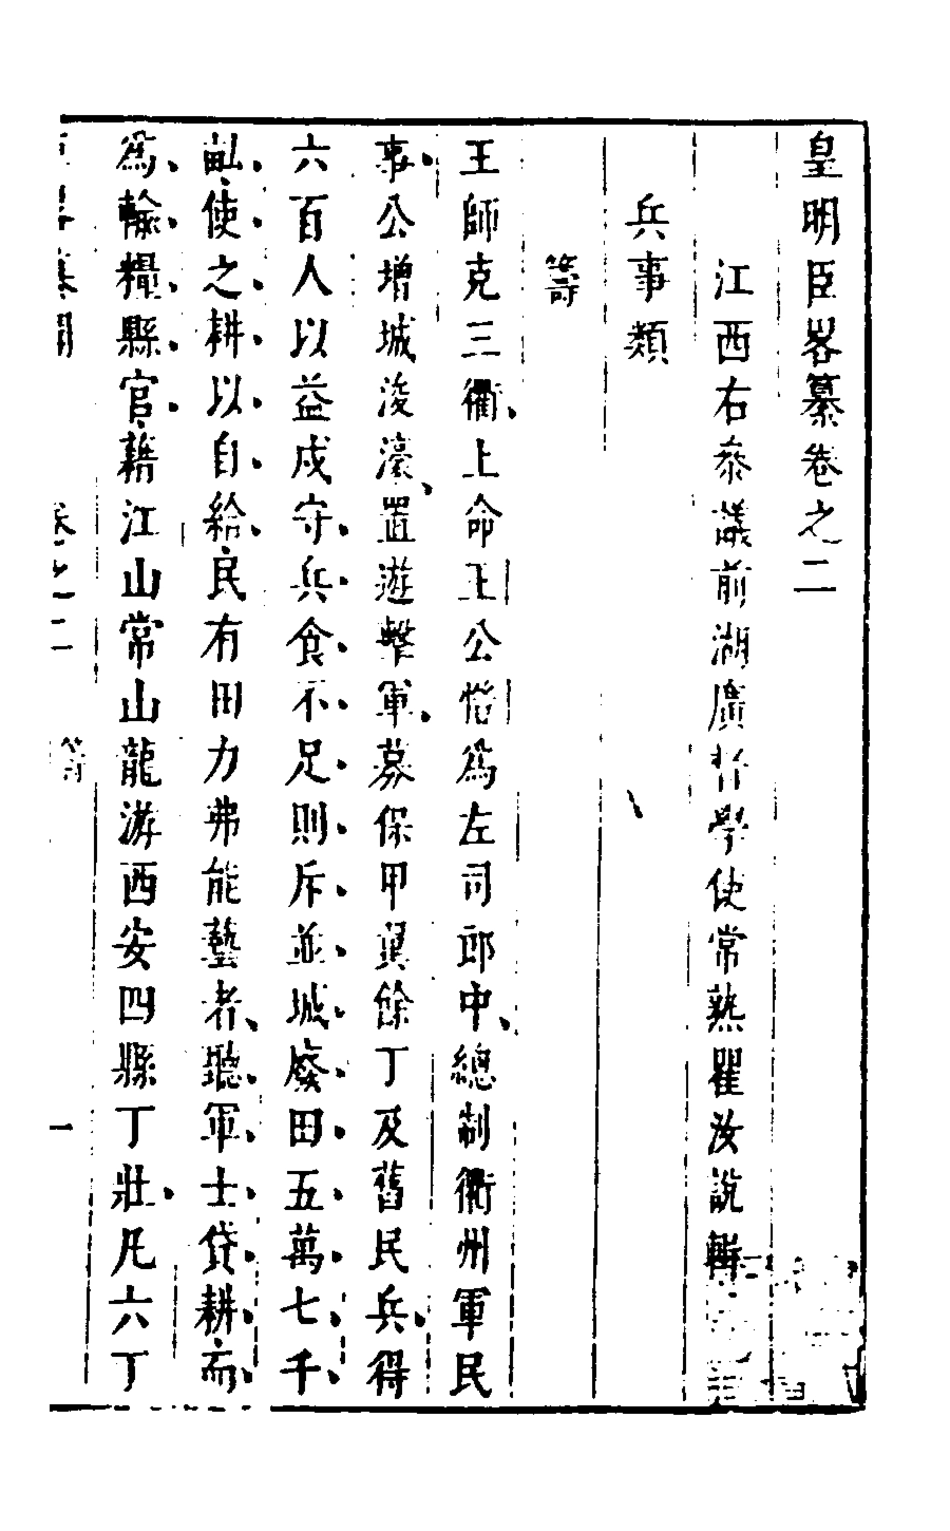 皇明臣畧纂卷之二
江西右叅議前湖廣督學使常熟瞿汝說輯
兵事類
籌
王師克三衢上命王公愷為左司郎中總制衢州軍民
事公增城浚濠置遊擊軍募保甲翼餘丁及舊民兵得
六百人以益戍守兵食不足則斥並城廢田五萬七千
畝使之耕以自給民有田力弗能藝者聽軍士貸耕而
為輸糧縣官藉江山常山龍游西安四縣丁壯凡六丁
卷之二 籌 一